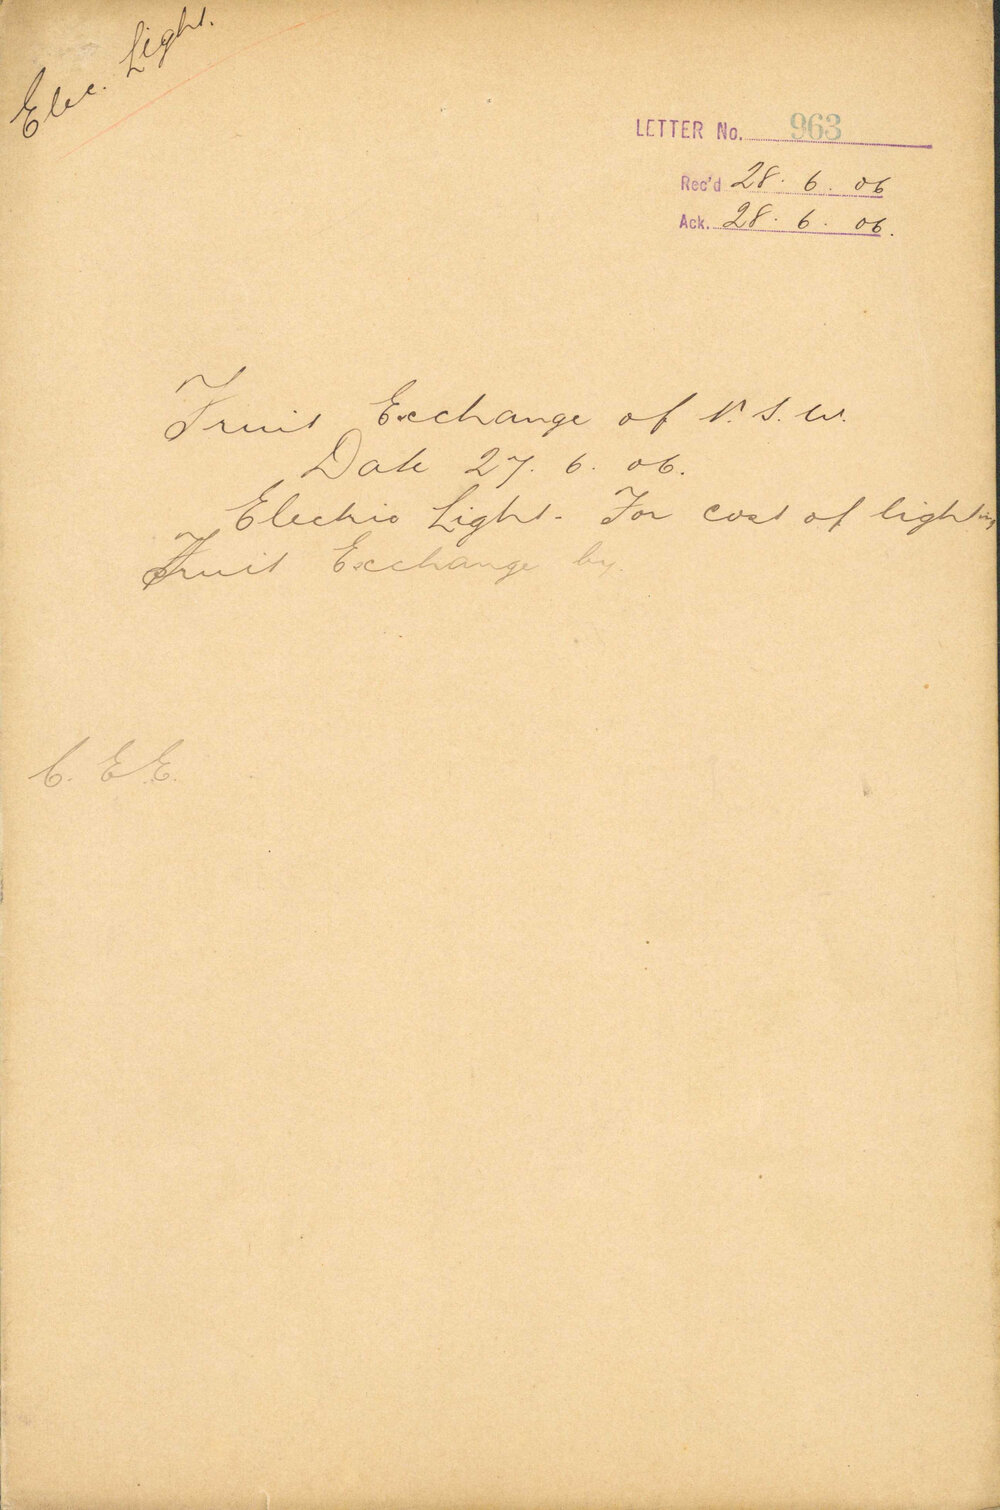 Elec. Light.
LETTER No. 963
Rec'd 28. 6. 06
Ack. 28. 6. 06.
Fruit Exchange of N.S.W.
Date 27. 6. 06.
Electric Light. For cost of lighting
Fruit Exchange by.
C. E.E.